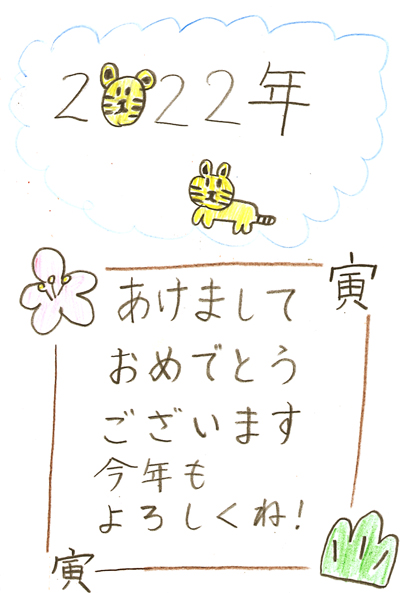 2022年
寅
あけまして
おめでとう
ございます
今年も
よろしくね!
寅